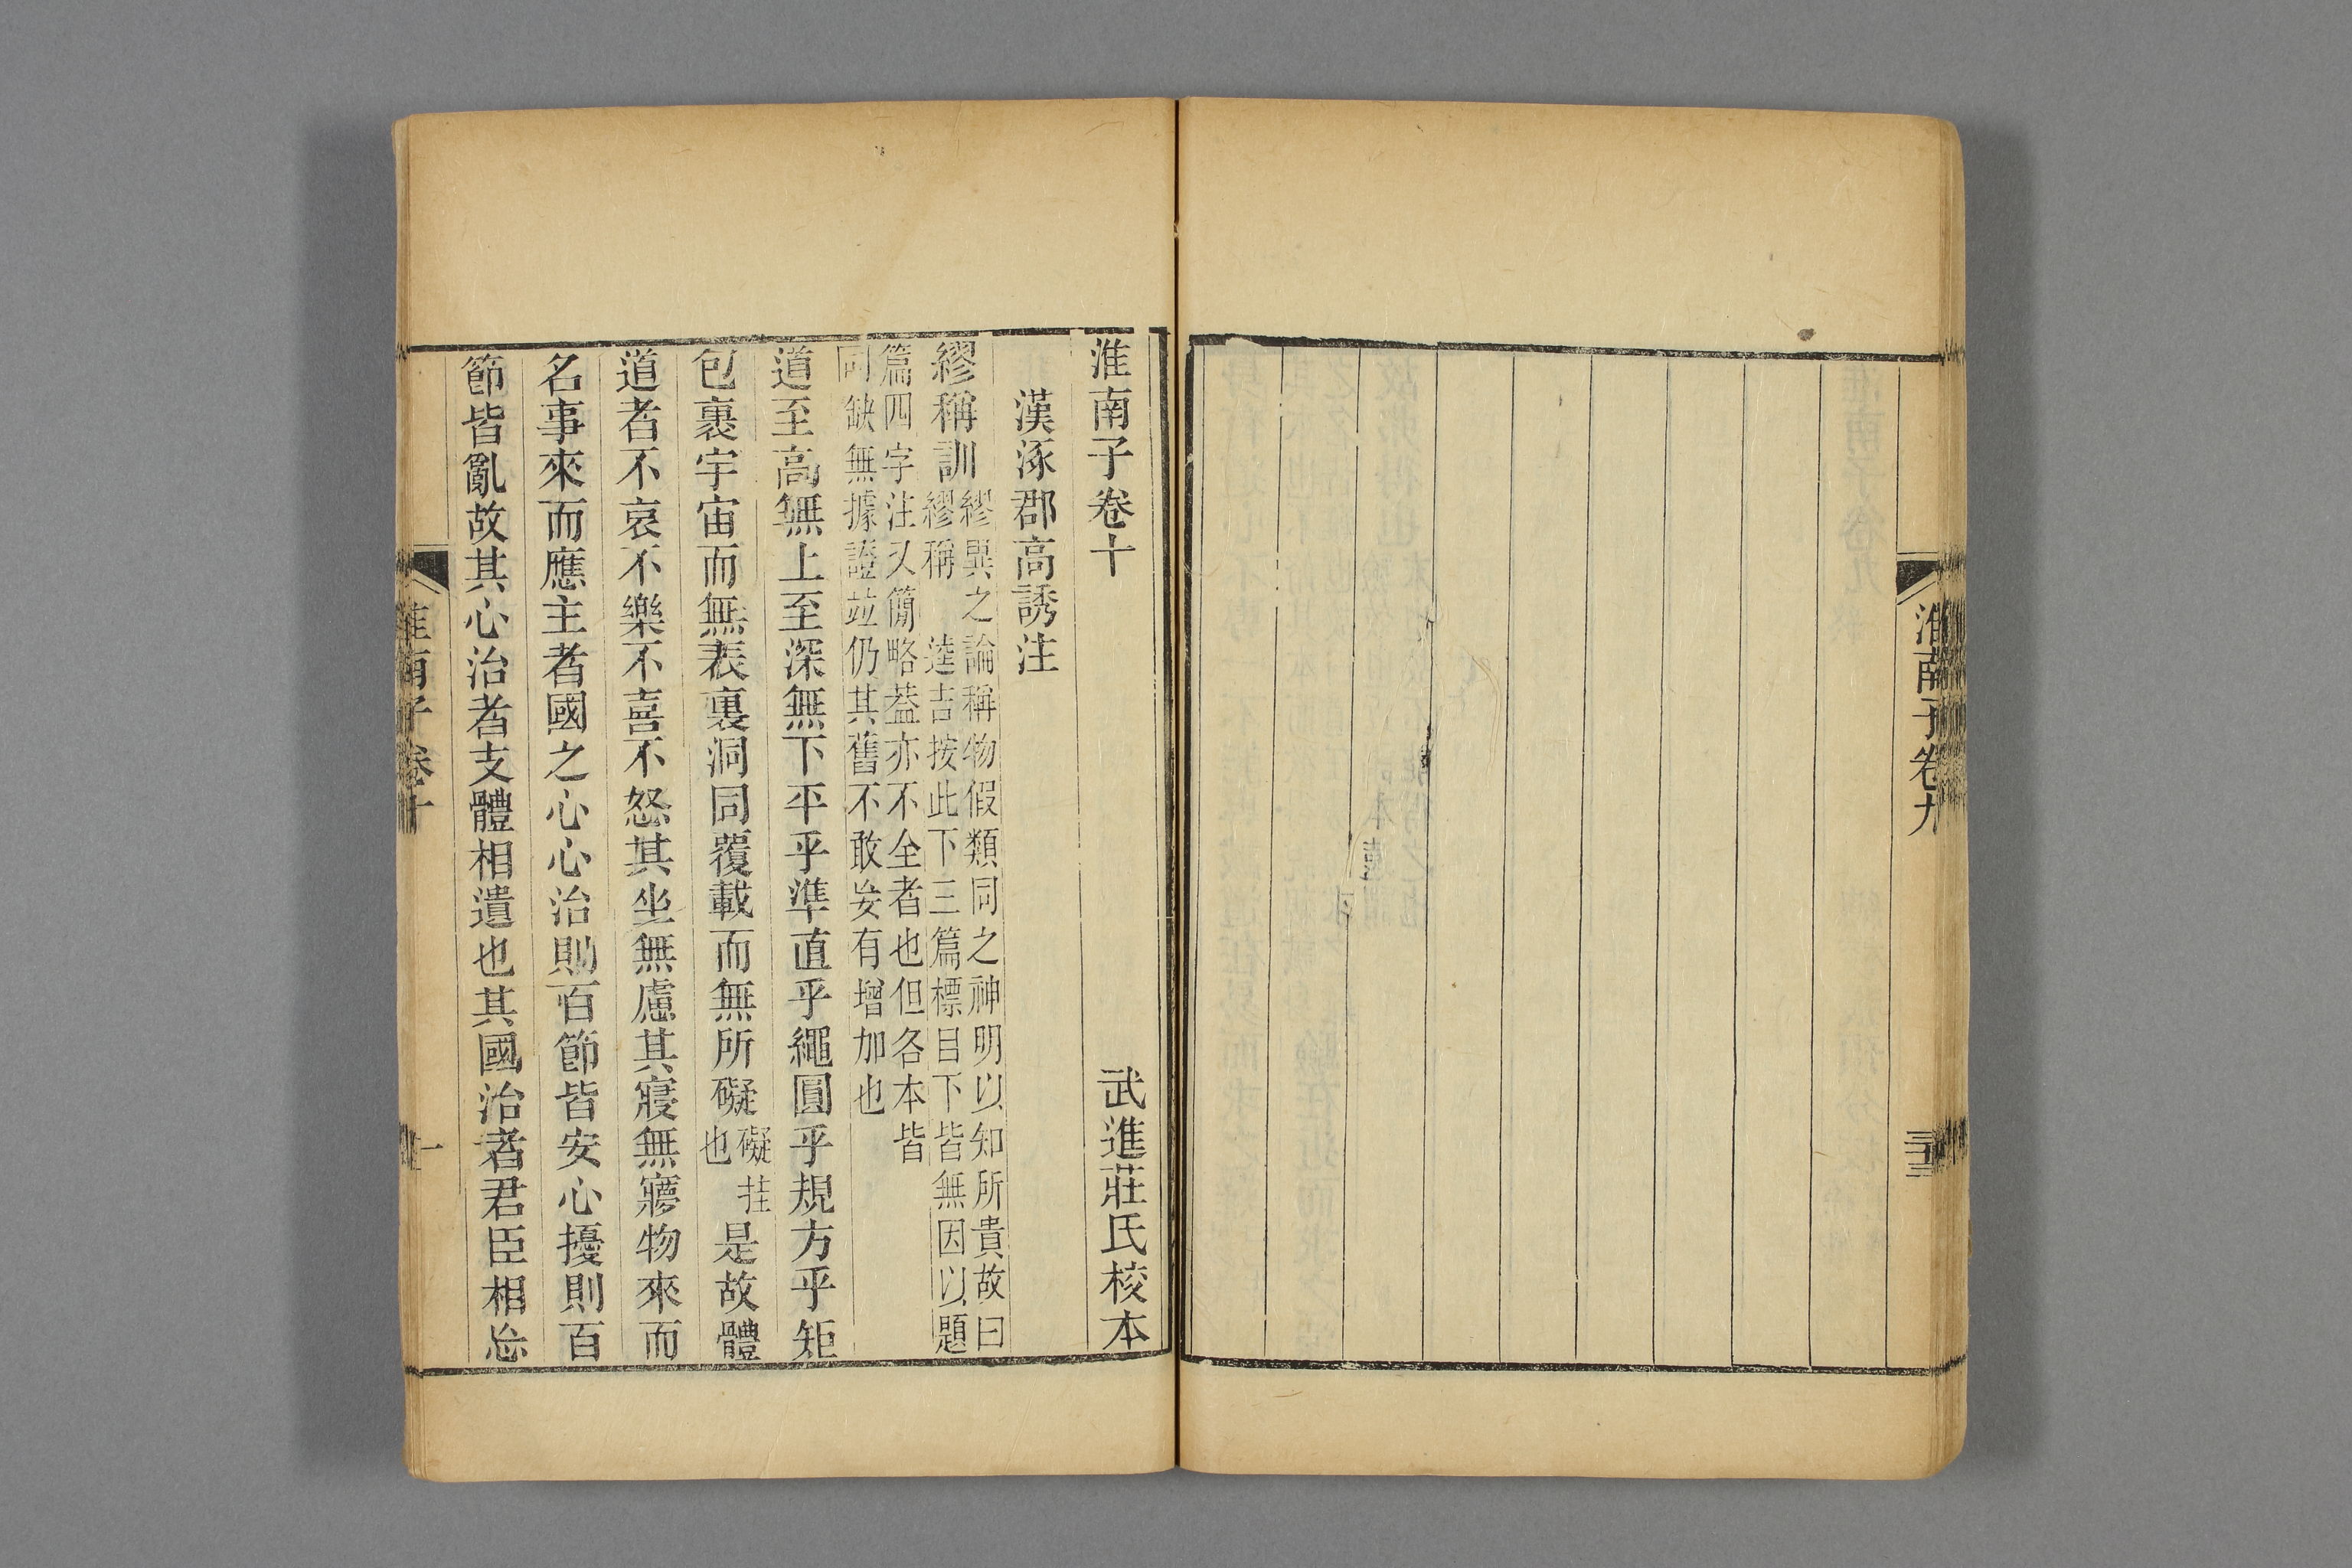 淮南子卷九
三十三
淮南子卷十　武進莊氏校本
漢涿郡高誘注
繆稱訓繆異之論稱物假類同之神明以知所貴故曰
繆稱　逵吉按此下三篇標目下皆無因以題
篇四字注又簡略葢亦不全者也但各本皆
同缺無據證竝仍其舊不敢妄有增加也
道至高無上至深無下平乎準直乎繩圓乎規方乎矩
包裹宇宙而無表裏洞同覆載而無所礙礙挂也是故體
道者不哀不樂不喜不怒其坐無慮其寢無寢物來而
名事來而應主者國之心心治則百節皆安心擾則百
節皆亂故其心治者支體相遺也其國治者君臣相忘
淮南子卷十
一